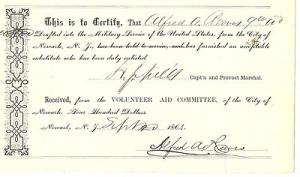 This is to Certify, That Alfred A. Reeves 9th Wd
Drafted into the Military Service of the United States, from the City of
Newark, N. J., has been held to service, and has furnished an acceptable
substitute who has been duly enlisted
Capt'n and Provost Marshal.
Received, from the VOLUNTEER AID COMMITTEE, of the City of
Newark, Hundred Dollars
Newark, N. J. Sept 186
Alfred A Reeves